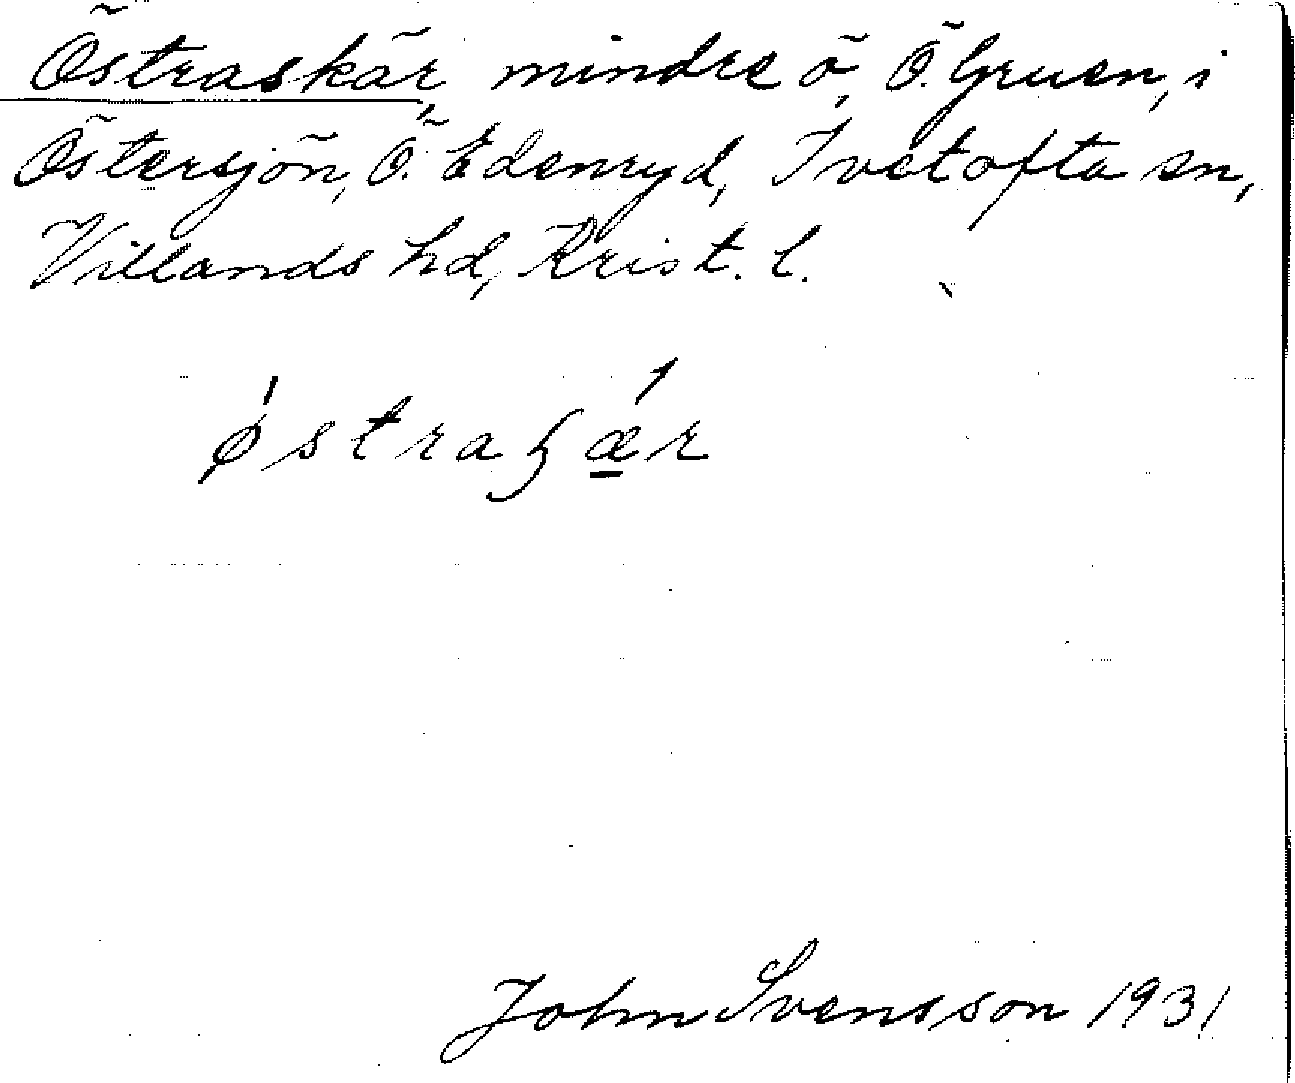 Östraskär, mindre ö, Ö. Gruen, i
Östersjön, Ö. Edenryd, Ivetofta sn,
Villands hd, Krist. l.
östraʂær
John Svensson 1931